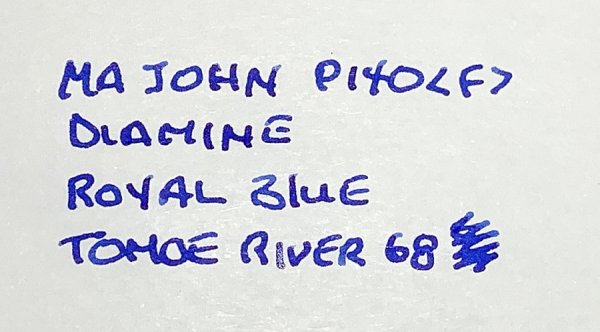 MAJOHN P140<F>
DIAMINE
ROYAL BLUE
TOMOE RIVER 68